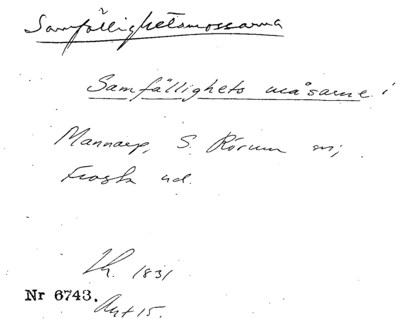 Samfällighetsmossarna
Samfällighets måsarne i
Mannarp, S. Rörum sn;
Frosta hd.
Lh. 1831
Nr 6743.
Akt 15.